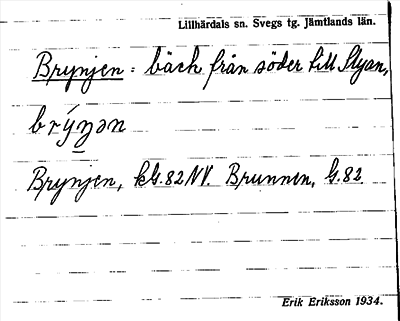 Lillhärdals sn. Svegs tg. Jämtlands län.
Brynjen : bäck från söder till Styan,
Brynjen, kbl. 82 NV. Brunnen, bl. 82.
Erik Eriksson 1934.